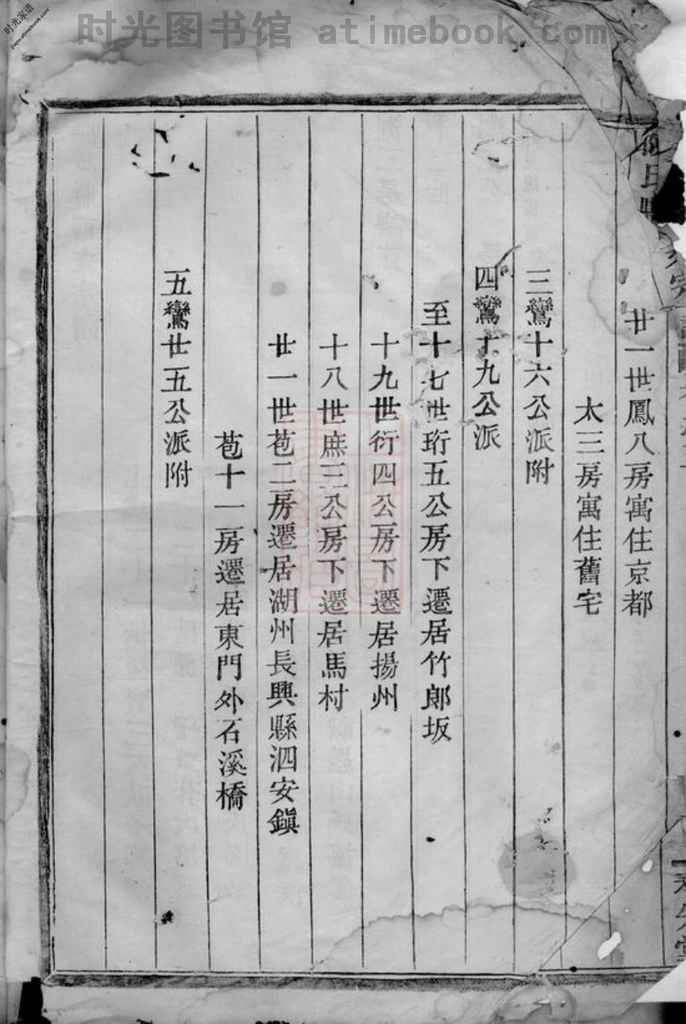 时光图书馆 atimebook.com
时光家谱
廿一世鳳八房寓住京都
太三房寓住舊宅
三鸞十六公派附
四鸞十九公派
至十七世珩五公房下遷居竹郞坂
十九世衍四公房下遷居揚州
十八世庶三公房下遷居馬村
廿一世苞二房遷居湖州長興縣泗安鎭
苞十一房遷居東門外石溪橋
五鸞廿五公派附